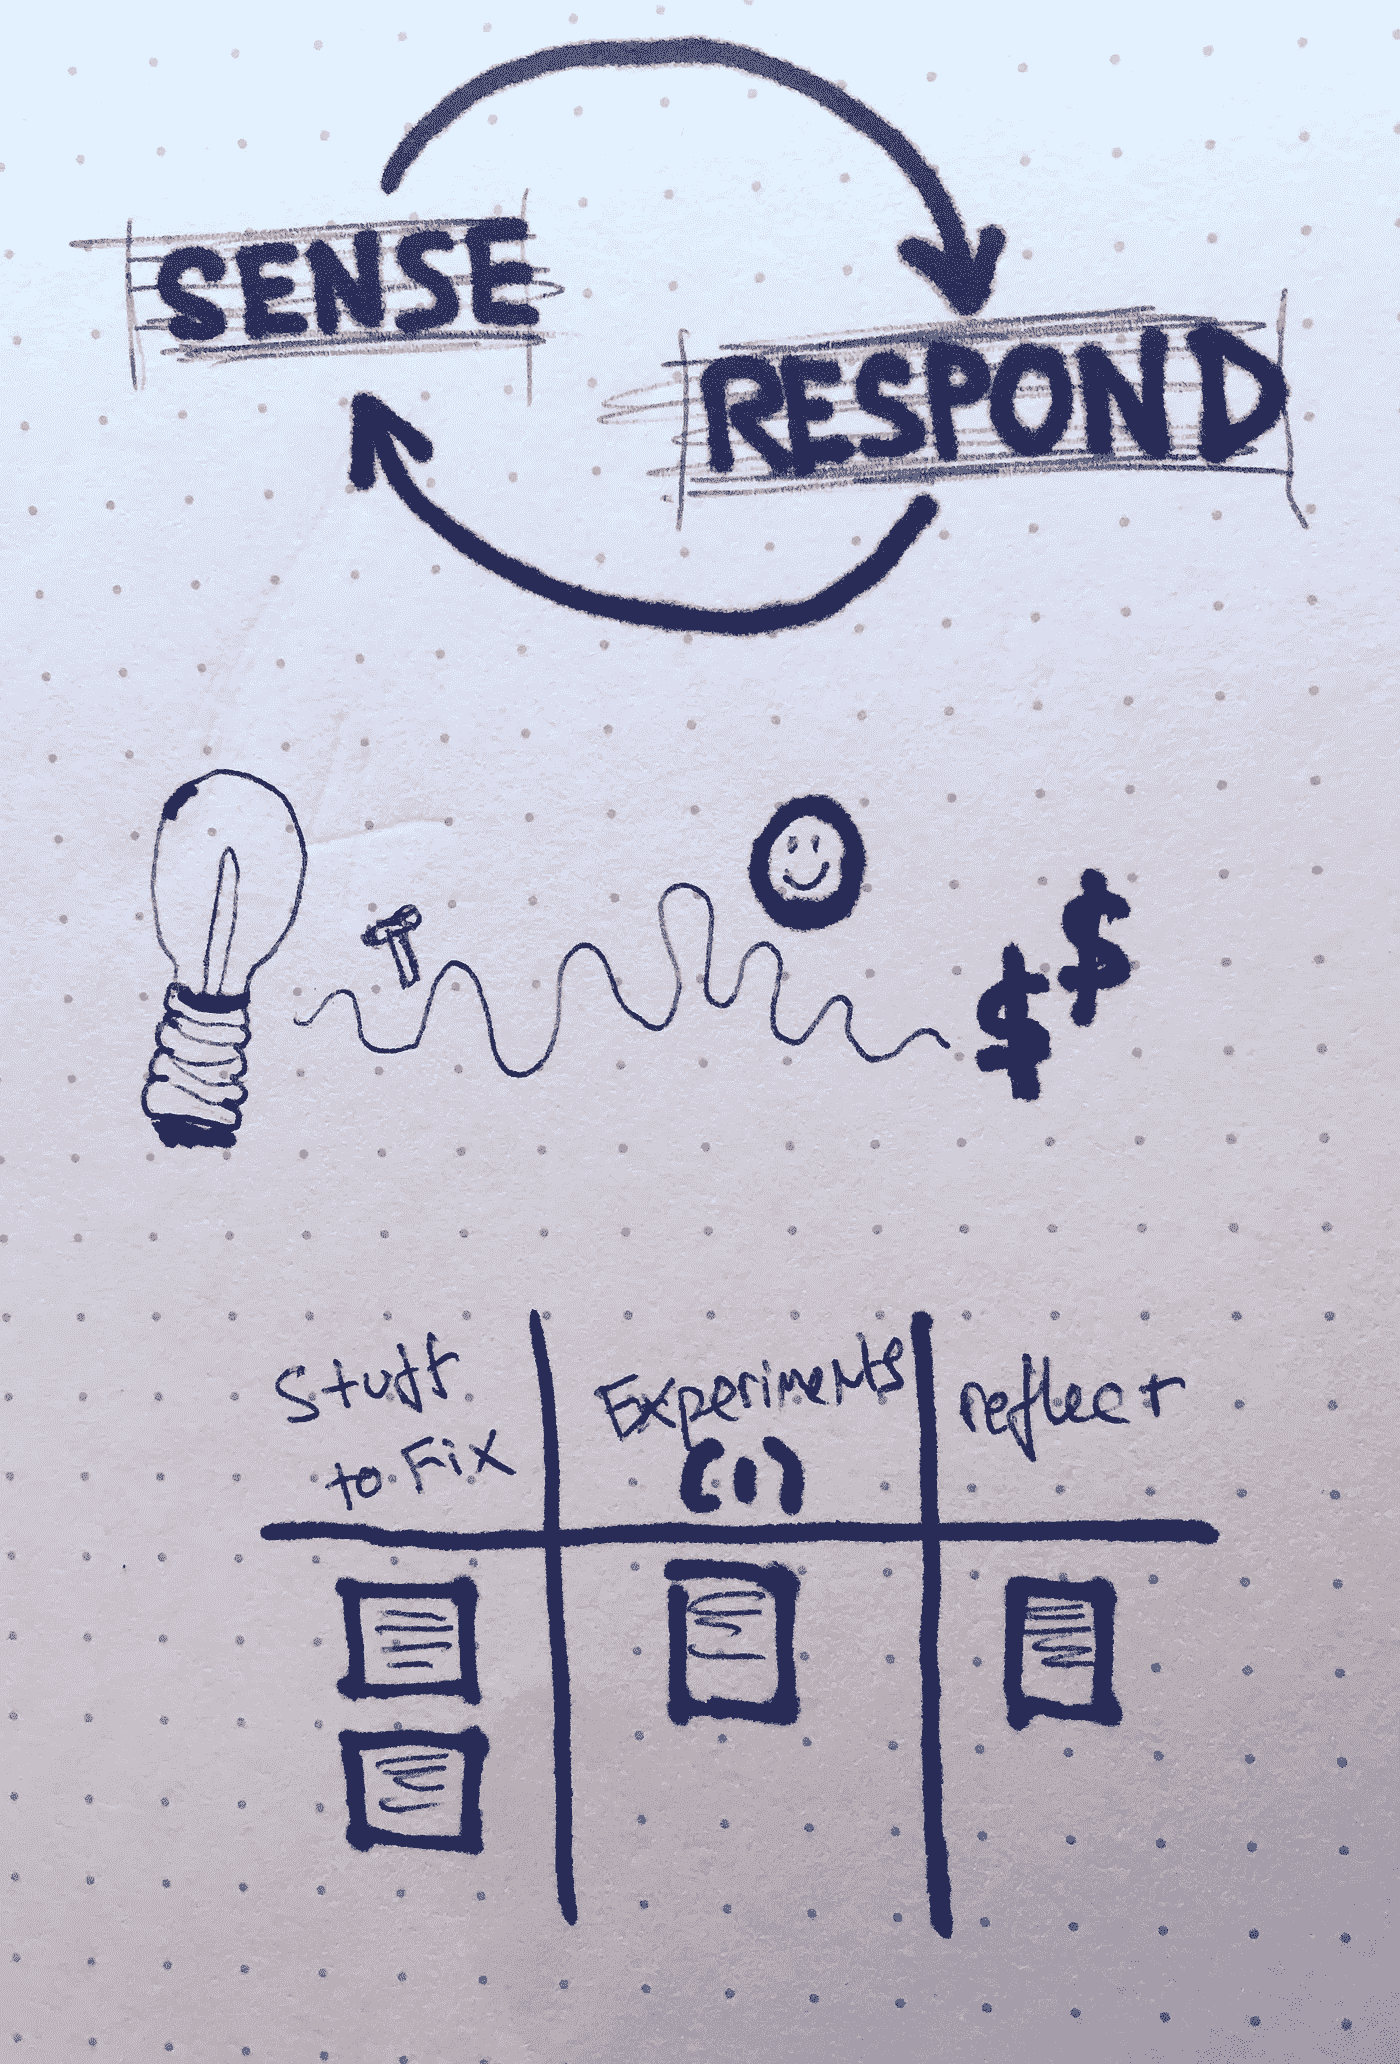 SENSE
RESPOND
$ $
Stuff
to Fix
Experiments
(1)
reflect